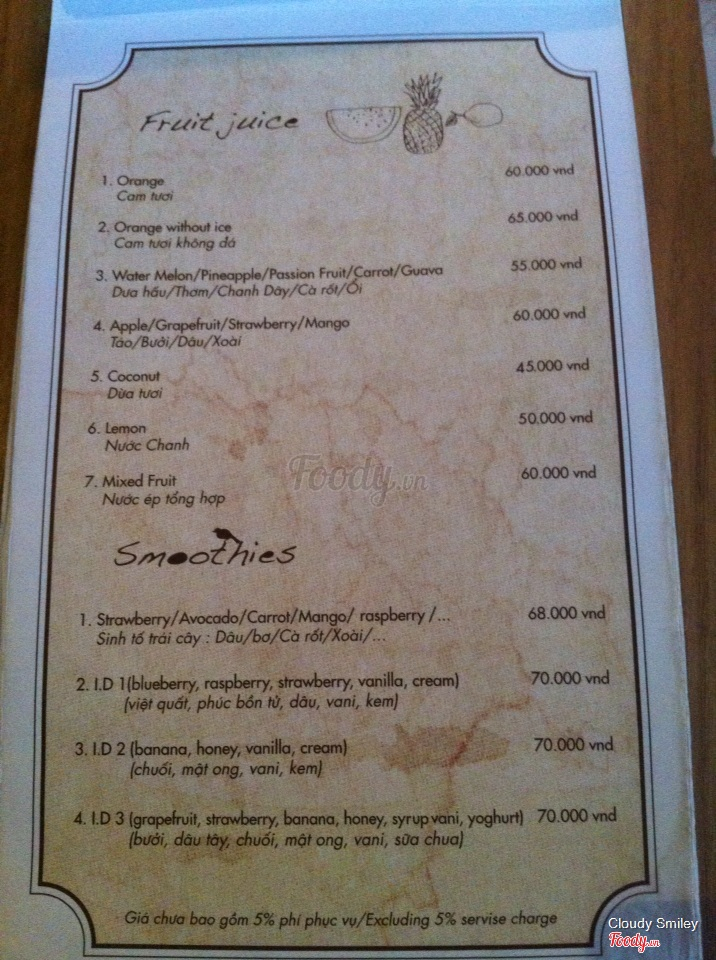 Fruit juice
1. Orange 60.000 vnd
Cam tươi
2. Orange without ice 65.000 vnd
Cam tươi không đá
3. Water Melon/Pineapple/Passion Fruit/Carrot/Guava 55.000 vnd
Dưa hấu/Thơm/Chanh Dây/Cà rốt/Ổi
4. Apple/Grapefruit/Strawberry/Mango 60.000 vnd
Táo/Bưởi/Dâu/Xoài
5. Coconut 45.000 vnd
Dừa tươi
6. Lemon 50.000 vnd
Nước Chanh
7. Mixed Fruit 60.000 vnd
Nước ép tổng hợp
Foody.vn
Smoothies
1. Strawberry/Avocado/Carrot/Mango/ raspberry /... 68.000 vnd
Sinh tố trái cây : Dâu/bơ/Cà rốt/Xoài/...
2. I.D 1(blueberry, raspberry, strawberry, vanilla, cream) 70.000 vnd
(việt quất, phúc bồn tử, dâu, vani, kem)
3. I.D 2 (banana, honey, vanilla, cream) 70.000 vnd
(chuối, mật ong, vani, kem)
4. I.D 3 (grapefruit, strawberry, banana, honey, syrup vani, yoghurt) 70.000 vnd
(bưởi, dâu tây, chuối, mật ong, vani, sữa chua)
Giá chưa bao gồm 5% phí phục vụ/Excluding 5% servise charge
Cloudy Smiley
Foody.vn